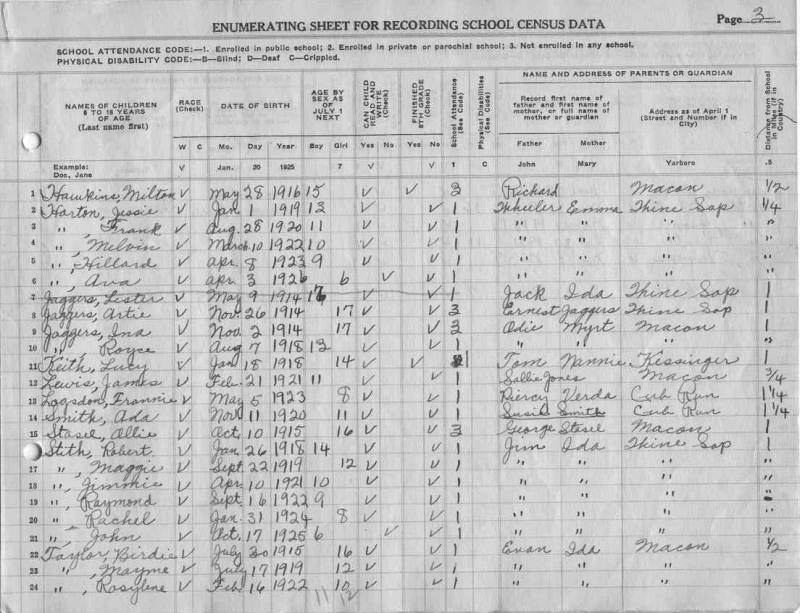 Page 3
ENUMERATING SHEET FOR RECORDING SCHOOL CENSUS DATA
SCHOOL ATTENDANCE CODE:—1. Enrolled in public school; 2. Enrolled in private or parochial school; 3. Not enrolled in any school.
PHYSICAL DISABILITY CODE:—B—Blind; D—Deaf C—Crippled.
NAMES OF CHILDREN 6 TO 18 YEARS OF AGE (Last name first) RACE (Check) DATE OF BIRTH AGE BY SEX AS OF JULY 1 NEXT CAN CHILD READ AND WRITE (Check) FINISHED 8TH GRADE (Check) School Attendance (See Code) Physical Disabilities (See Code) NAME AND ADDRESS OF PARENTS OR GUARDIAN Distance from School in Miles (if in Country)
Record first name of father and first name of mother, or full name of mother or guardian Address as of April 1 (Street and Number if in City)
W C Mo. Day Year Boy Girl Yes No Yes No Father Mother
Example: Doe, Jane V Jan. 20 1925 7 V V 1 C John Mary Yarboro .5
1 Hawkins, Milton V May 28 1916 15 V V 3 Richard Macon 1/2
2 Horton, Jessie V Jan 1 1919 12 V V 1 Wheeler Emma Thine Sap 1/4
3 ", Frank V Aug. 28 1920 11 V V 1 " " " "
4 ", Melvin V March 10 1922 10 V V 1 " " " "
5 ", Hillard V Apr. 8 1923 9 V V 1 " " " "
6 ", Ava V Apr. 3 1926 6 V V 1 " " " "
7 Jaggers, Lester V May 9 1914 V V 1 Jack Ida Thine Sap 1
8 Jaggers, Artie V Nov. 26 1914 17 V V 3 Ernest Jaggers Thine Sap 1
9 Jaggers, Ina V Nov. 2 1914 17 V V 3 Odie Myrt Macon 1
10 ", Royce V Aug 7 1918 13 V V 1 " " " "
11 Keith, Lucy V Jan 18 1918 14 V V 1 Tom Nannie Kissinger 1
12 Lewis, James V Feb. 21 1921 11 V V 1 Sallie Jones Macon 3/4
13 Logsdon, Frannie V May 5 1923 8 V V 1 Percy Verda Cub Run 1 1/4
14 Smith, Ada V Nov 11 1920 11 V V 1 Susie Smith Cub Run 1 1/4
15 Stasel, Allie V Oct. 10 1915 16 V V 3 George Stasel Macon 1
16 Stith, Robert V Jan 26 1918 14 V V 1 Jim Ida Thine Sap 1
17 ", Maggie V Sept. 22 1919 12 V V 1 " " " "
18 ", Jimmie V Apr. 10 1921 10 V V 1 " " " "
19 ", Raymond V Sept. 16 1922 9 V V 1 " " "
20 ", Rachel V Jan. 31 1924 8 V V 1 " " " "
21 ", John V Oct. 17 1925 6 V V 1 " " " "
22 Taylor, Birdie V July 20 1915 16 V V 1 Evan Ida Macon 1/2
23 ", Mayme V July 17 1919 12 V V 1 " " " "
24 ", Rosylene V Feb. 16 1922 10 V V 1 " " " "
11 12